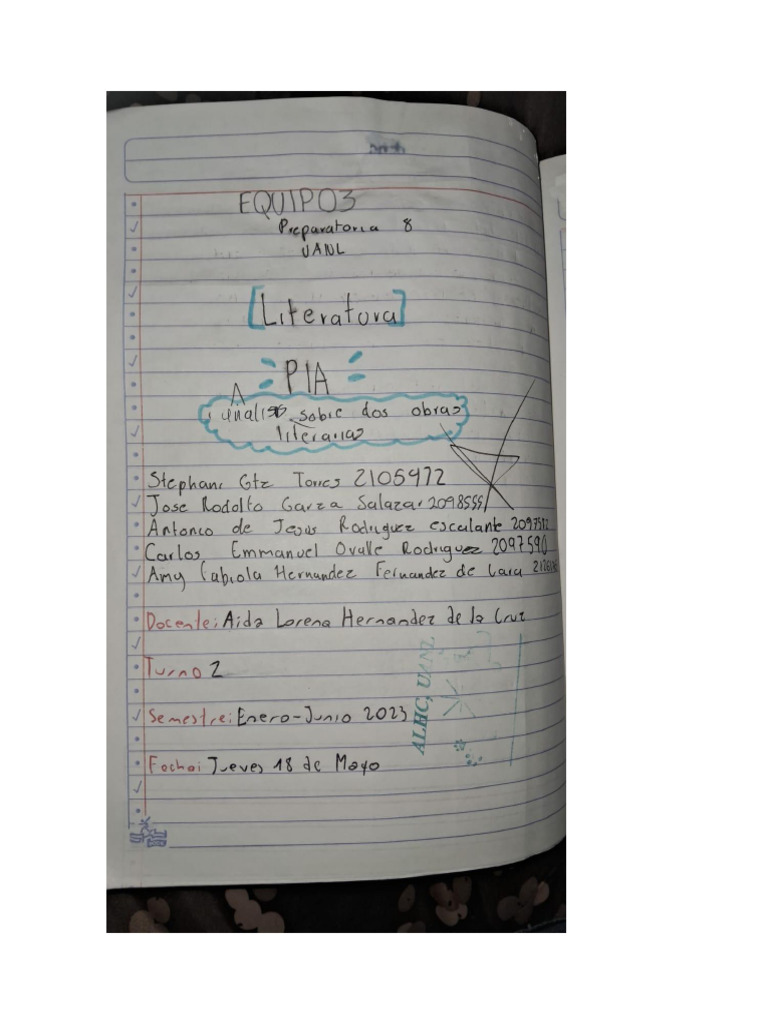 EQUIPO3
Preparatoria 8
UANL
[Literatura]
PIA
Analisis sobre dos obras
literarias
Stephani Gtz Torres 2105972
Jose Rodolfo Garza Salazar 2098555
Antonio de Jesús Rodriguez escalante 2097512
Carlos Emmanuel Ovalle Rodriguez 2097590
Amy Fabiola Hernandez Fernandez de Lara
Docente: Aida Lorena Hernandez de la Cruz
Turno 2
Semestre: Enero-Junio 2023
Fecha: Jueves 18 de Mayo
ALHC, UANL